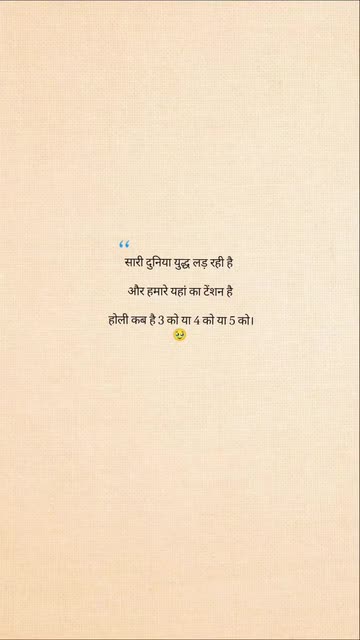 “
सारी दुनिया युद्ध लड़ रही है
और हमारे यहां का टेंशन है
होली कब है 3 को या 4 को या 5 को।
🥹